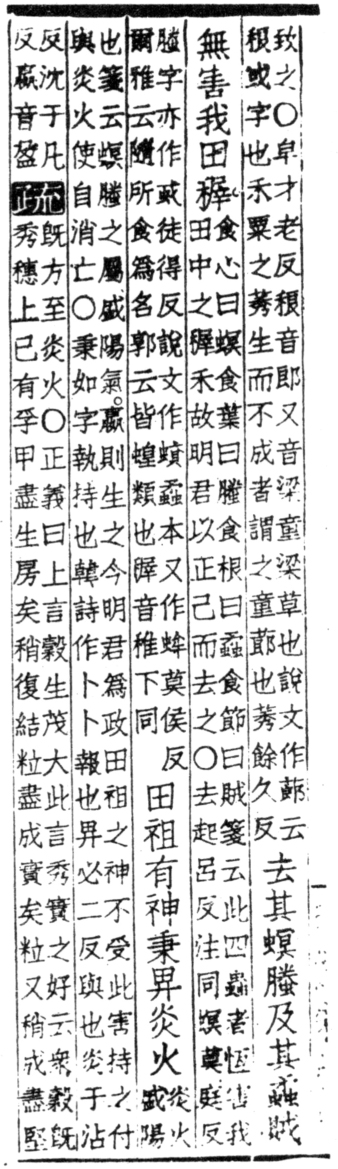 致之○皁才老反稂音郎又音梁童梁草也說文作蓈云
稂或字也禾粟之莠生而不成者謂之童蓈也莠餘久反
去其螟螣及其蟊賊
無害我田穉
食心曰螟食葉曰螣食根曰蟊食節曰賊箋云此四蟲者恆害我
田中之穉禾故明君以正己而去之○去起呂反注同螟莫庭反
螣字亦作徒得反說文作蟘蟊本又作蛑莫侯反
爾雅云隨所食爲名郭云皆蝗類也穉音稚下同
田祖有神秉畀炎火
炎火
盛陽
也箋云螟螣之屬盛陽氣嬴則生之今明君爲政田祖之神不受此害持之付
與炎火使自消亡○秉如字執持也韓詩作卜卜報也畀必二反與也炎于沾
反沈于凡
反嬴音盈
疏
旣方至炎火○正義曰上言穀生茂大此言秀實之好云衆穀旣
秀穗上已有孚甲盡生房矣稍復結粒盡成實矣粒又稍成盡堅